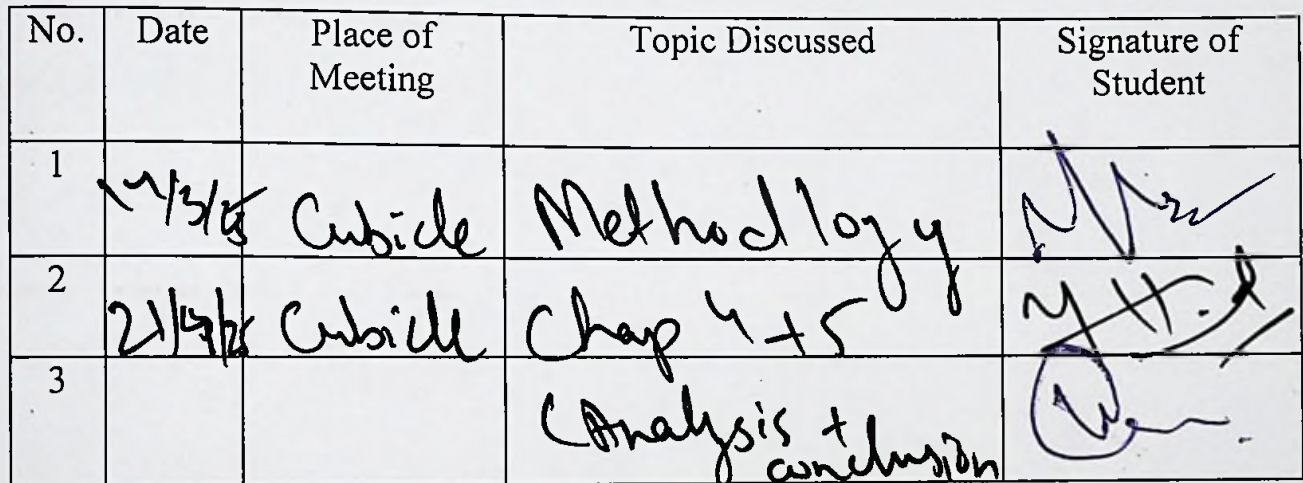 No. Date Place of Meeting Topic Discussed Signature of Student
1 Cubicle Methodlogy
2 Cubicle Chap 4 + 5
3 (Analysis + conclusion